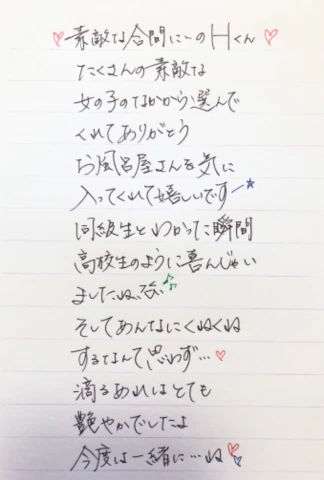 ♡素敵な合間に…のHくん♡
たくさんの素敵な
女の子のなかから選んで
くれてありがとう
お風呂屋さんを気に
入ってくれて嬉しいです
同級生とわかった瞬間
高校生のように喜んじゃい
ましたね
そしてあんなにくねくね
するなんて思わず…♡
滴るあれはとても
艶やかでしたよ
今度は一緒に…ね♡